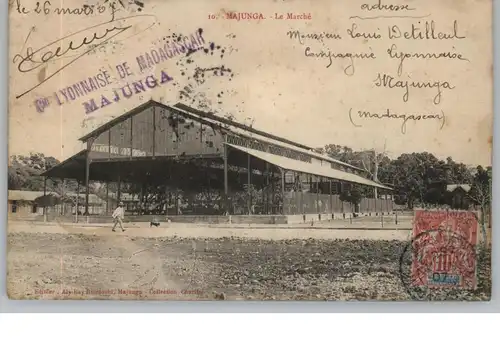 le 26 mars 07
10. - MAJUNGA. - Le Marché
adresse
Monsieur Louis Detilleul
Compagnie Lyonnaise
Majunga
(Madagascar)
Cie LYONNAISE DE MADAGASCAR
MAJUNGA
Editeur : Aly-Bay, Majunga - Collection
07